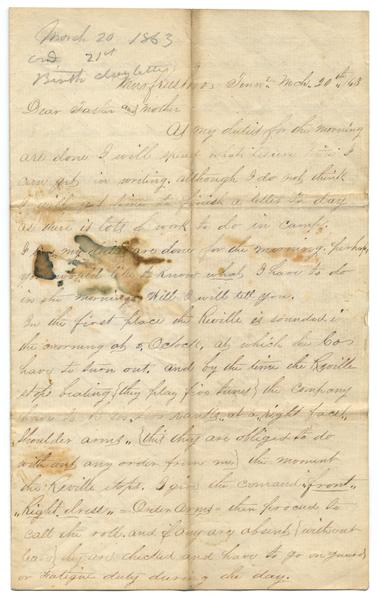 March 20 1863
and 21st
Birth day letter
Murfreesboro Tenn Mch. 20th /63
Dear Father and Mother
As my duties for the morning
are done I will spend what leisure time I
can get in writing. although I do not think
I will get time to finish a letter to day
as there is lots of work to do in camp.
I my duties are done for the morning. perhaps
you would like to know what I have to do
in the morning. Well I will tell you.
In the first place the Reville is sounded in
the morning at 5, Oclock, at which the Cos
have to turn out. and by the time the Reville
stops beating (they play five tunes) the company
have to be in at a right face,
Shoulder arms,, (this they are obliged to do
without any order from me) the moment
the Reville stops. I give the command ,,front,,
,,Right dress,, - Order Arms - then proceed to
call the roll. and if any are absent (without
leave) they are checked and have to go on guard
or Fatigue duty during the day.